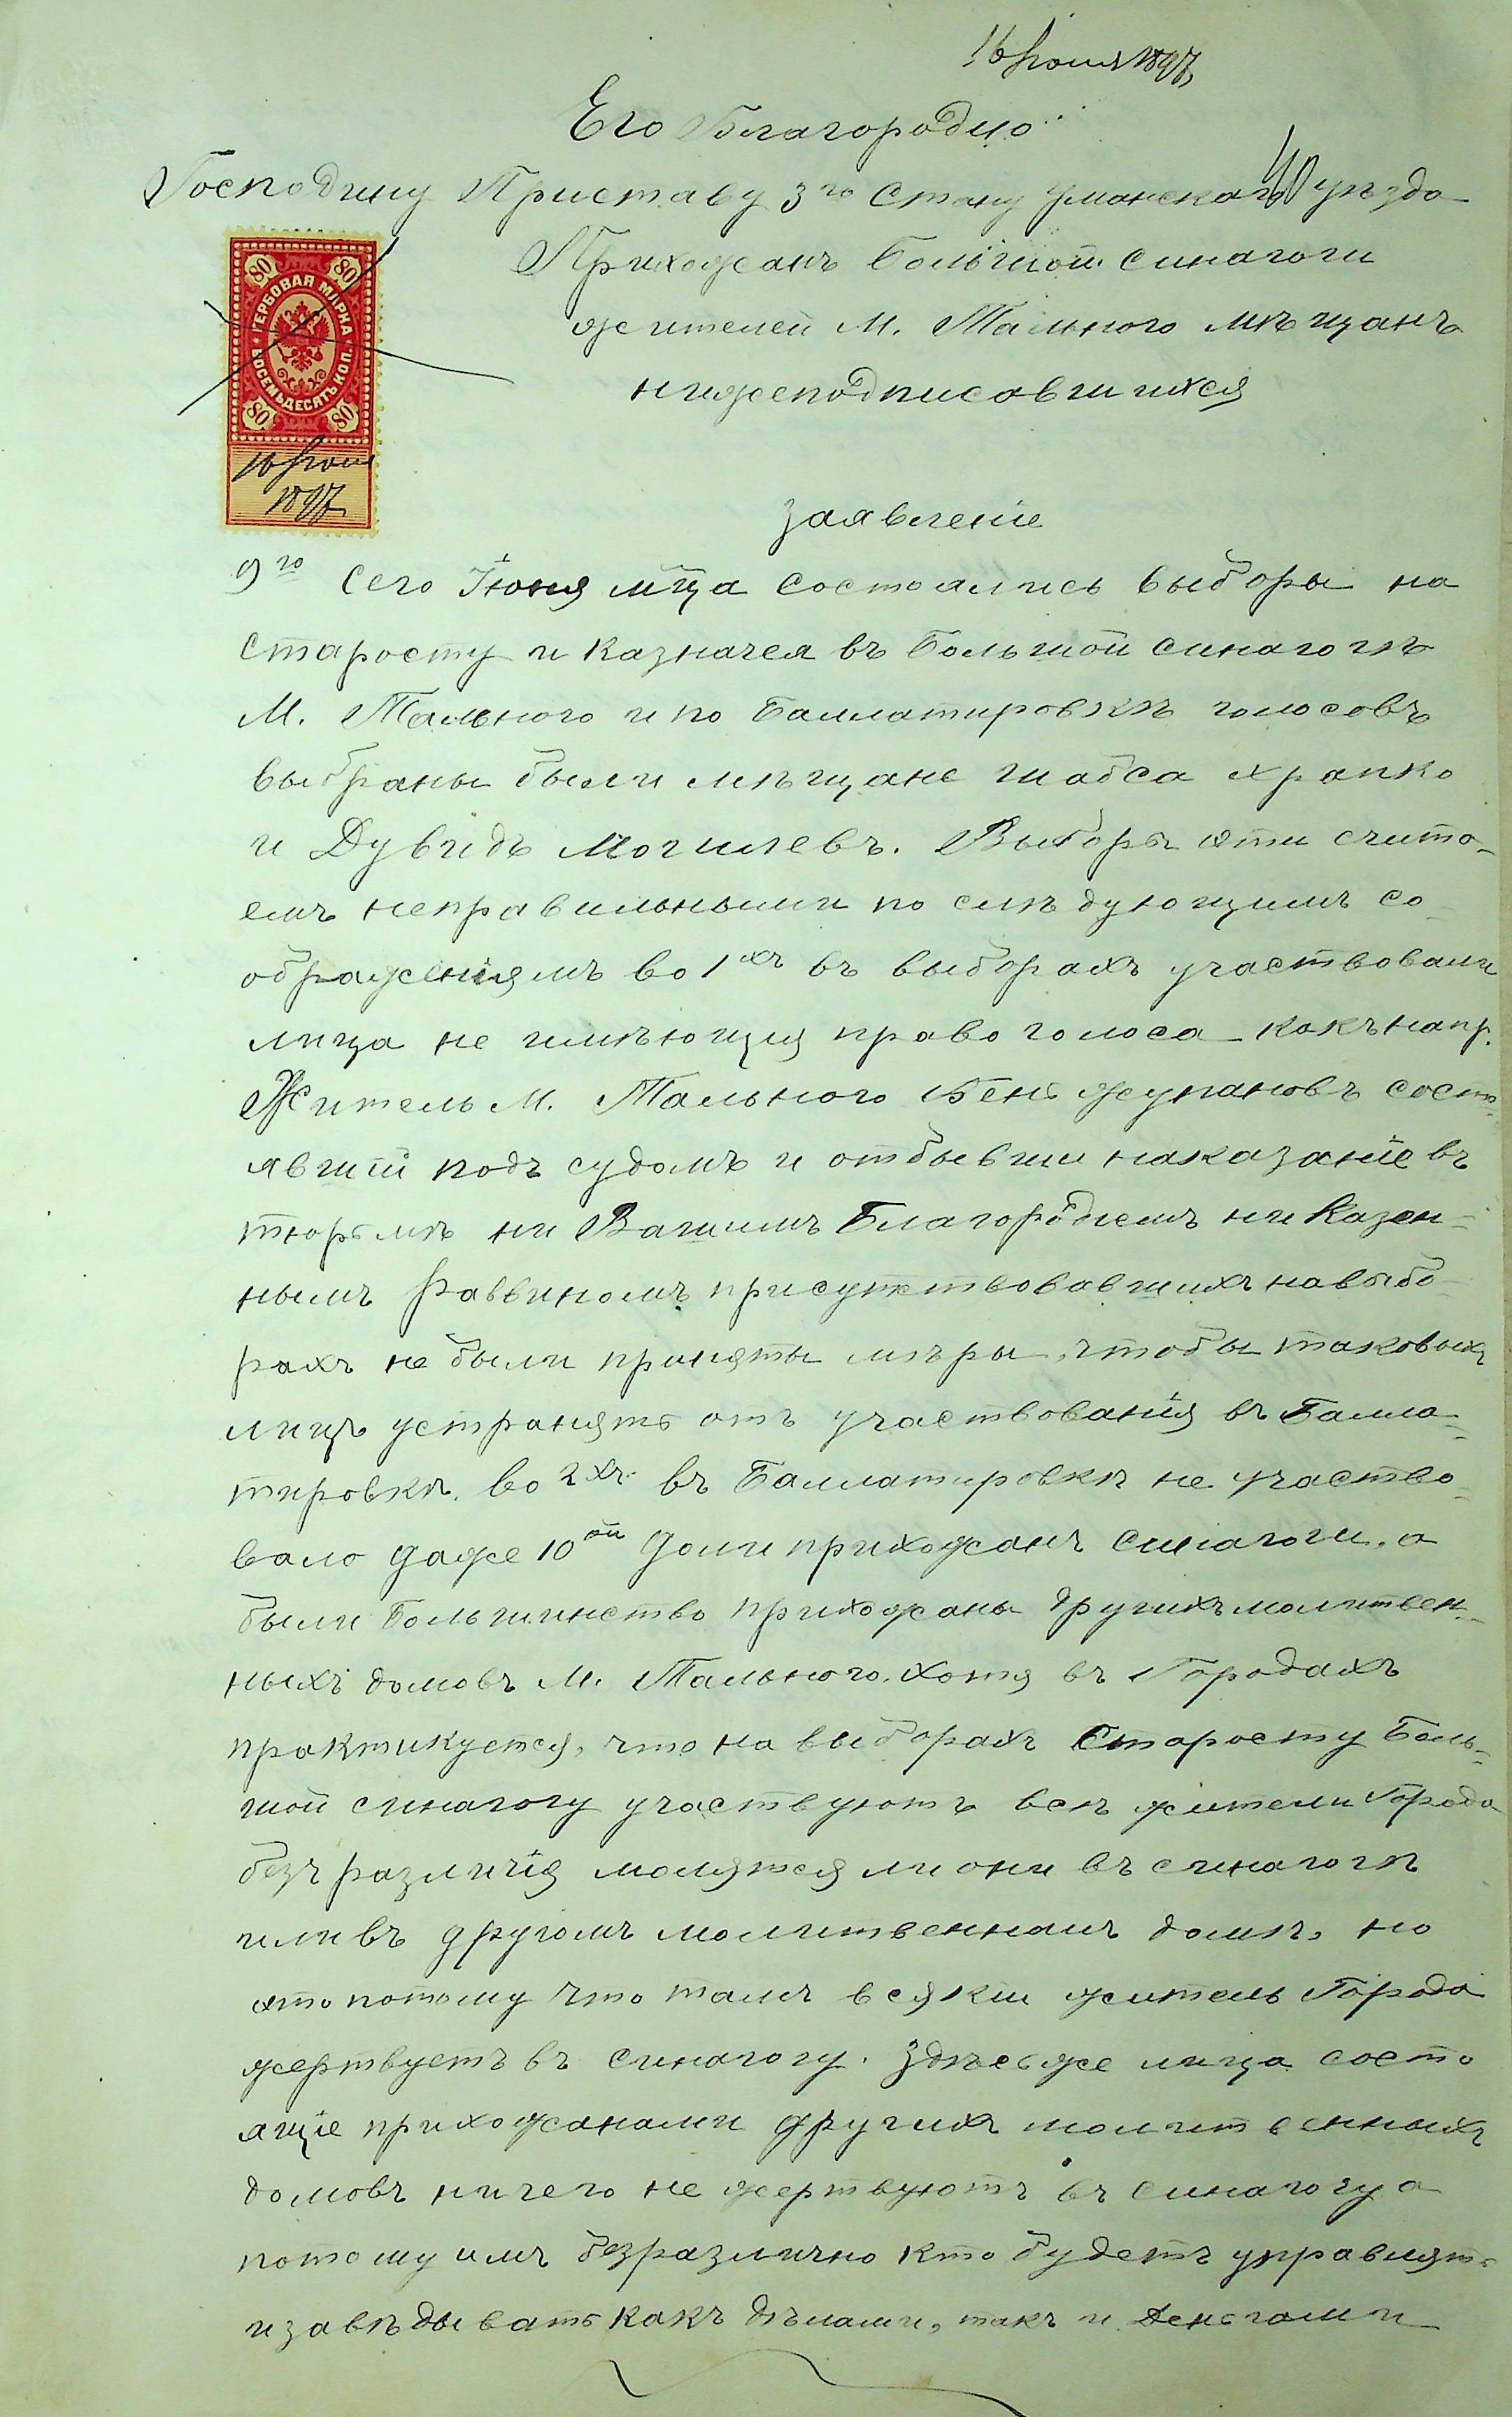 16 Іюня 1897
Его Благородію
Господину Приставу 3го Стану Уманскаго уѣзда
Прихожанъ Большой синагоги
жителей М. Тального мѣщанъ
нижеподписавшихся
80 80
ГЕРБОВАЯ МАРКА
ВОСЕМЬДЕСЯТЪ КОП.
80 80
16 Іюня
1897
заявленіе
9го Сего Іюня мца состоялись выборы на
старосту и казначея въ Большой синагогѣ
М. Тального и по Баллатировкѣ голосовъ
выбраны были мѣщане Шабса Храпко
и Дувидъ Могилевъ. Выборы эти счита-
емъ неправильными по слѣдующимъ со-
ображеніямъ во 1хъ въ выборахъ участвовали
лица не имѣющія право голоса какъ напр.
Житель М. Тального Бень Жупановъ состо-
явшій подъ судомъ и отбывши наказаніе въ
тюрьмѣ ни Вашимъ Благородіемъ ни Казен-
нымъ Раввиномъ присутствовавшихъ на выбо-
рахъ не были приняты мѣры чтобы таковыхъ
лицъ устранять отъ участвованія въ Балла-
тировкѣ. во 2хъ въ Баллатировкѣ не участво-
вало даже 10ой доли прихожанъ синагоги. а
были Большинство прихожаны другихъ молитвен-
ныхъ домовъ М. Тального. Хотя въ Городахъ
практикуется, что на выборахъ Старосту Боль-
шой синагогу участвуютъ всѣ жители Города
безъ различія молятся ли они въ синагогѣ
или въ другомъ молитвенномъ домѣ, но
это потому что тамъ всякій житель Города
жертвуетъ въ синагогу. Здѣсь же лица состо
ящіе прихожанами другихъ молитвенныхъ
домовъ ничего не жертвуютъ въ синагогу а
потому имъ безразлично кто будетъ управлять
и завѣдывать какъ дѣлами, такъ и Деньгами